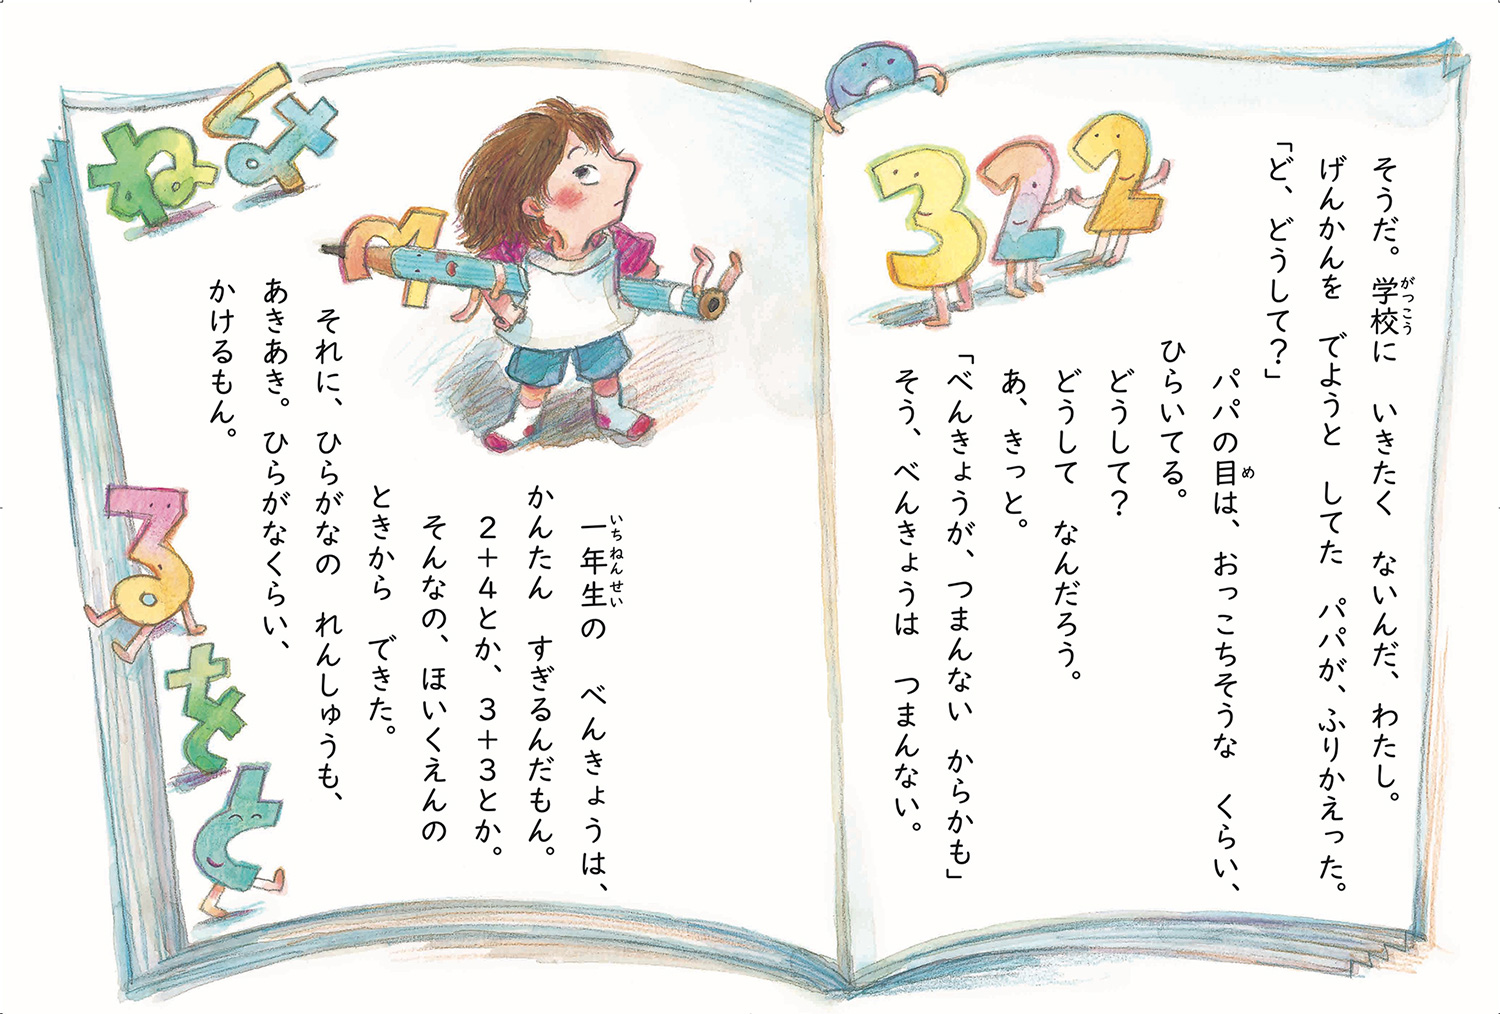 そうだ。学校に　いきたく　ないんだ、わたし。
がっこう
げんかんを　でようと　してた　パパが、ふりかえった。
「ど、どうして？」
パパの目は、おっこちそうな　くらい、
め
ひらいてる。
どうして？
どうして　なんだろう。
あ、きっと。
「べんきょうが、つまんない　からかも」
そう、べんきょうは　つまんない。
322
一年生の　べんきょうは、
いちねんせい
かんたん　すぎるんだもん。
2＋4とか、3＋3とか。
そんなの、ほいくえんの
ときから　できた。
それに、ひらがなの　れんしゅうも、
あきあき。ひらがなくらい、
かけるもん。
ね
る
を
と